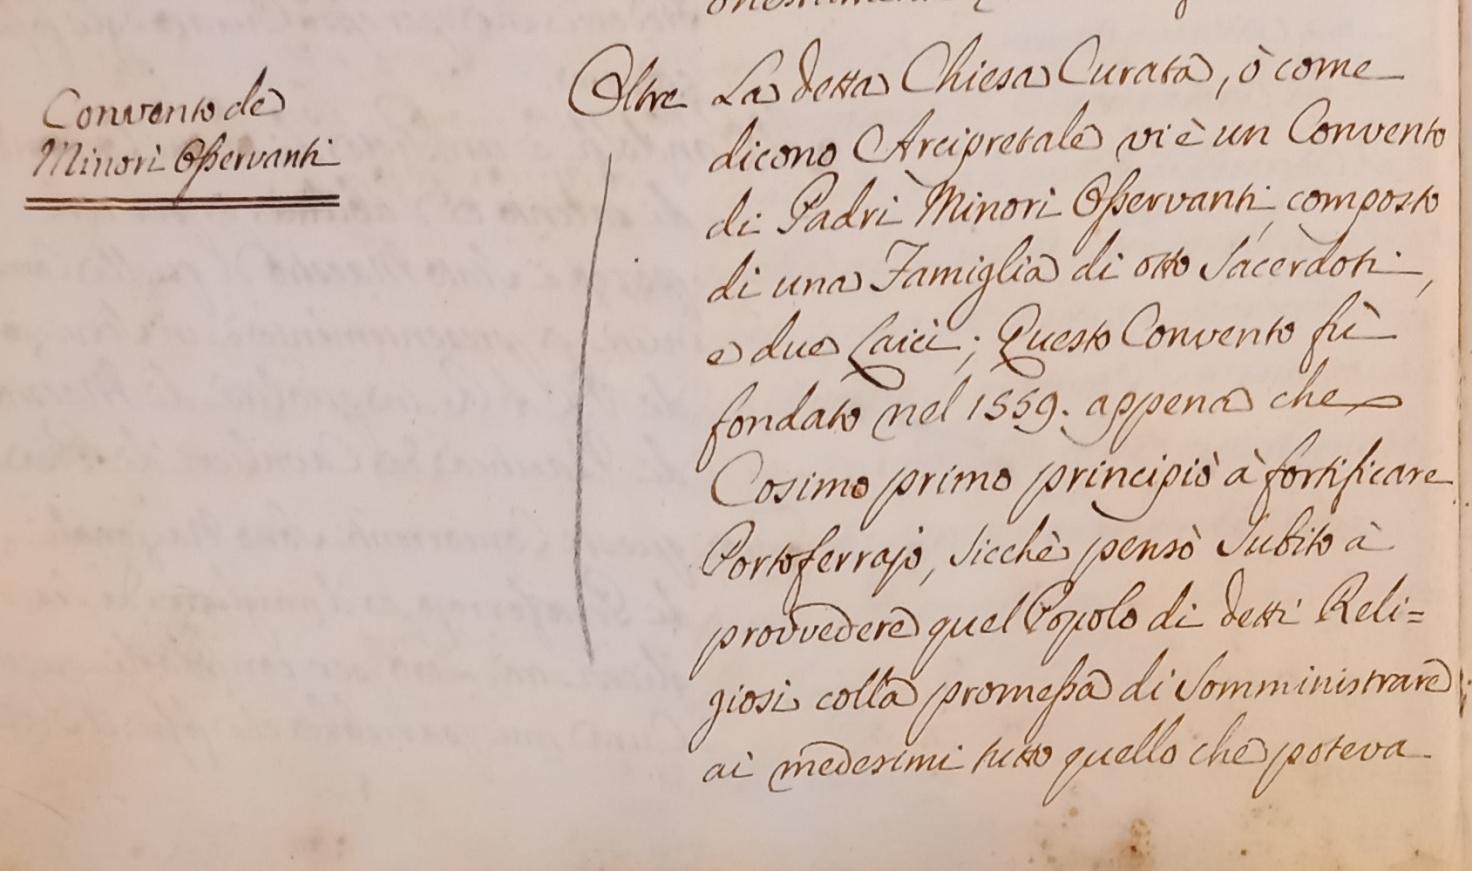 Convento de
Minori Osservanti
Oltre La detta Chiesa Curata, ò come
dicono Arcipretale vi è un Convento
di Padri Minori Osservanti composto
di una Famiglia di otto Sacerdoti,
e due Laici; Questo Convento fù
fondato nel 1559. appena che
Cosimo primo principiò à fortificare
Portoferrajo, sicchè pensò subito à
provvedere quel Popolo di detti Reli=
giosi colla promessa di somministrare
ai medesimi tutto quello che poteva